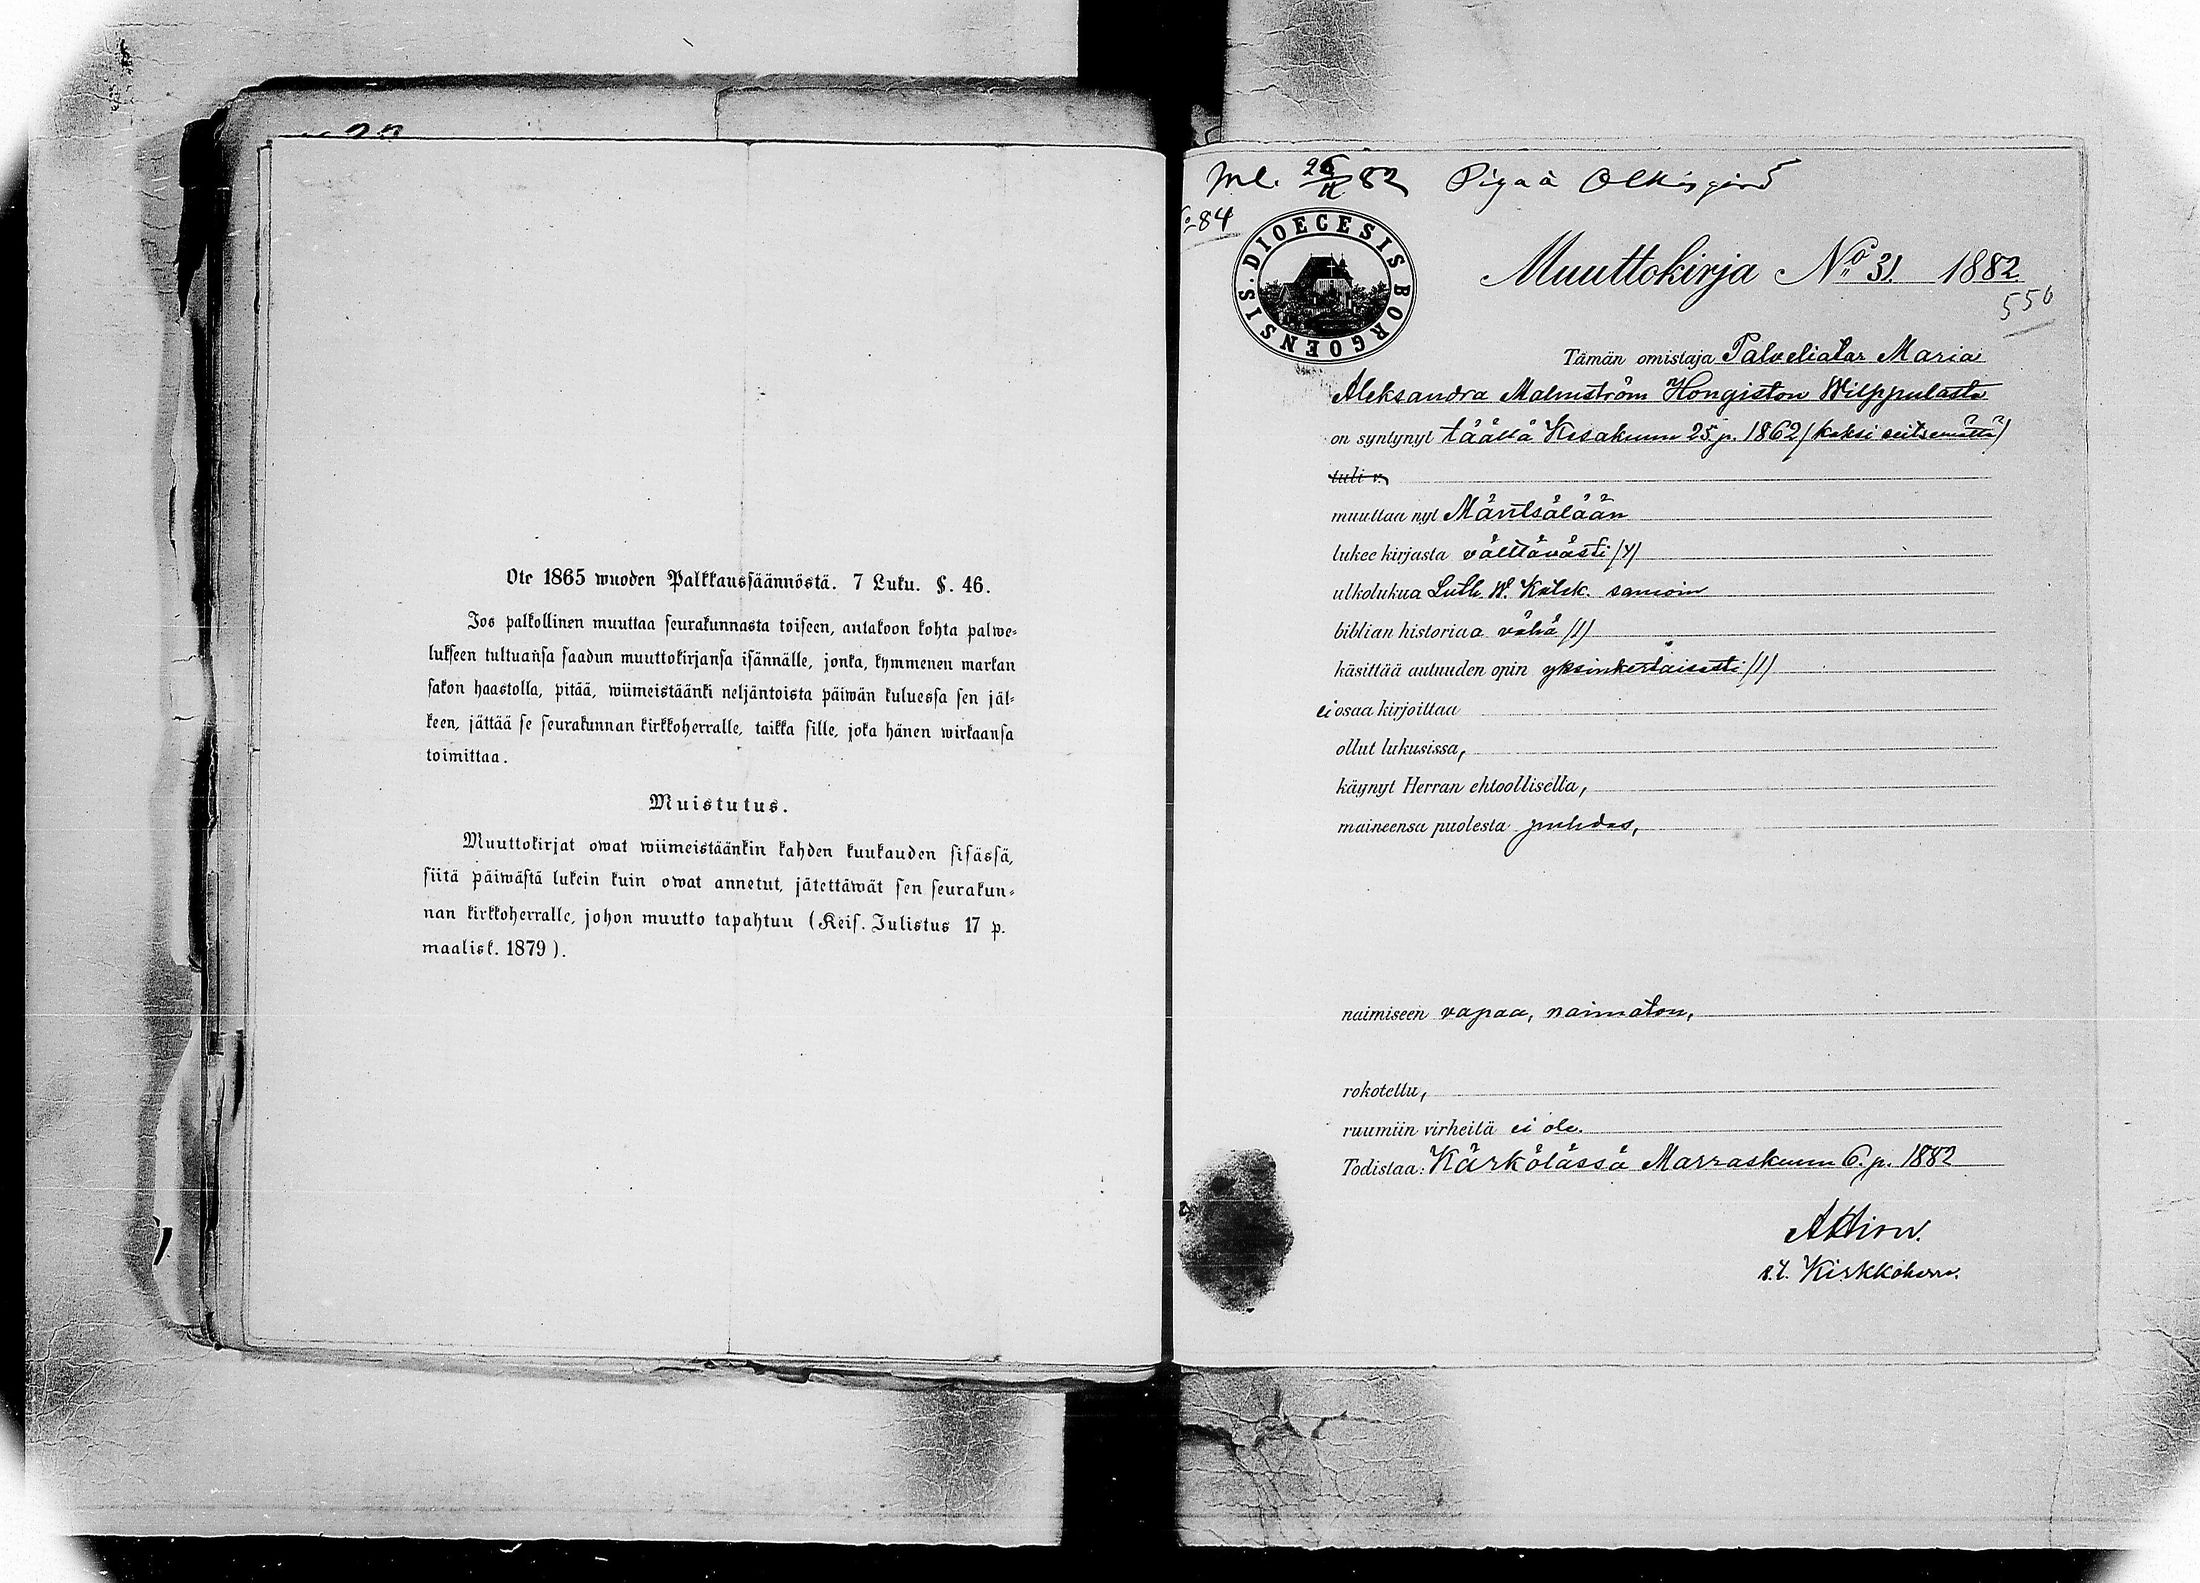 Ote 1865 wuoden Palkkaussäännöstä. 7 Luku. §. 46.
Jos palkollinen muuttaa seurakunnasta toiseen, antakoon kohta palwe-
lukseen tultuansa saadun muuttokirjansa isännälle, jonka, kymmenen markan
sakon haastolla, pitää, wiimeistäänki neljäntoista päiwän kuluessa sen jäl-
keen, jättää se seurakunnan kirkkoherralle, taikka sille, joka hänen wirkaansa
toimittaa.
Muistutus.
Muuttokirjat owat wiimeistäänkin kahden kuukauden sisässä,
siitä päiwästä lukein kuin owat annetut, jätettäwät sen seurakun-
nan kirkkoherralle, johon muutto tapahtuu (Keis. Julistus 17 p.
maalisk. 1879).
Inl. 26/11 82 Piga å
№ 84
DIOECESIS BORGOENSIS.
Muuttokirja No 31. 1882
556
Tämän omistaja Palveliatar Maria
Aleksandra Malmström Hongiston Wilppulasta
on syntynyt täällä Kesäkuun 25 p. 1862 (kaksi seitsemättä)
tuli v.
muuttaa nyt Mäntsälään
lukee kirjasta välttävästi /y/
ulkolukua Luth. W. Katek. samoin
biblian historiaa vähä /1/
käsittää autuuden opin yksinkertaisesti /1/
ei osaa kirjoittaa
ollut lukusissa,
käynyt Herran ehtoollisella,
maineensa puolesta puhdas,
naimiseen vapaa, naimaton,
rokotettu,
ruumiin virheitä ei ole.
Todistaa: Kärkölässä Marraskuun 6. p. 1882
v.t. Kirkkoherra.